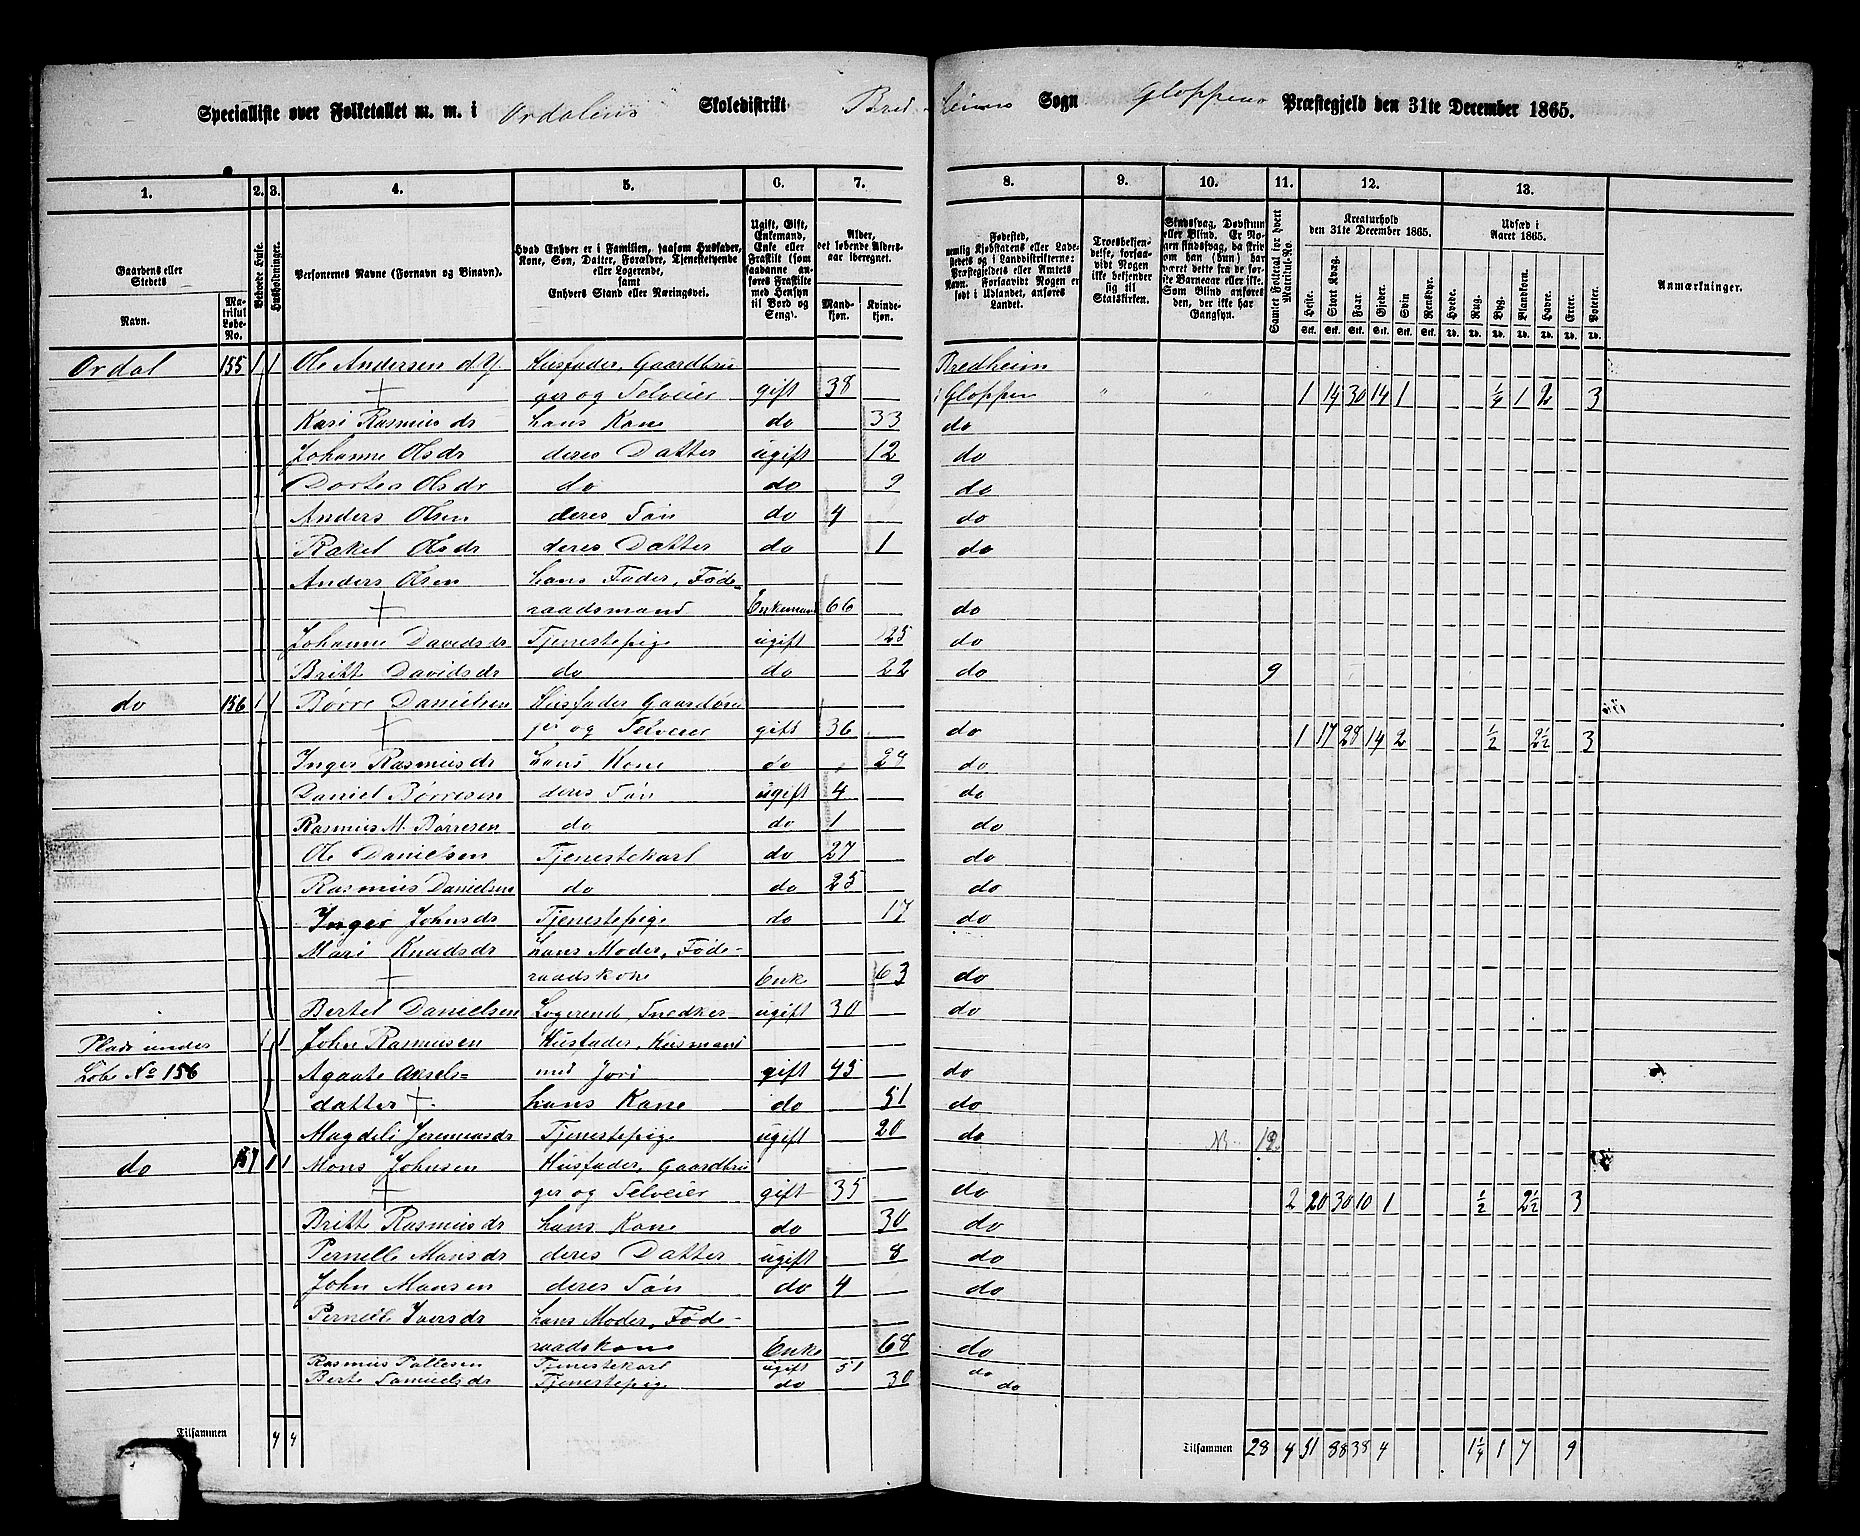 Specialliste over Folketallet m. m. i Ordalens Skoledistrikt Bredheims Sogn Gloppens Præstegjeld den 31te December 1865.
1. 2. 3. 4. 5. 6. 7. 8. 9. 10. 11. 12. 13.
Gaardens eller Stedets Navn.
Matrikul Løbe-No.
Beboede Huse.
Husholdninger.
Personernes Navne (Fornavn og Binavn).
Hvad Enhver er i Familien, saasom Husfader, Kone, Søn, Datter, Forældre, Tjenestetyende eller Logerende, samt Enhvers Stand eller Næringsvei.
Ugift, Gift, Enkemand, Enke eller Fraskilt (som saadanne anføres Fraskilte med Hensyn til Bord og Seng).
Alder, det løbende Alders-aar iberegnet.
Mandkjøn. Kvindekjøn.
Fødested, nemlig Kjøbstadens eller Ladestedets og i Landdistrikterne: Præstegjeldets eller Amtets Navn. Forsaavidt Nogen er født i Udlandet, anføres Landet.
Troesbekjendelse, forsaavidt Nogen ikke bekjender sig til Statskirken.
Sindssvag, Døvstum eller Blind. Er Nogen sindssvag, da skrives om han (hun) har været dette fra de første Barneaar eller ikke. Som Blind anføres den, der ikke har Gangsyn.
Samlet Folketal for hvert Matrikul-No.
Kreaturhold den 31te December 1865.
Heste. Stort Kvæg. Faar. Gjeder. Svin. Rensdyr.
Udsæd i Aaret 1865.
Hvede. Rug. Byg. Blandkorn. Havre. Erter. Poteter.
Anmærkninger.
Ordal 155 1 1 Ole Andersen d.y. Husfader, Gaardbru Bredheim
+ ger og Selveier gift 38 i Gloppen " " 1 14 30 14 1 1/4 1 2 3
Kari Rasmusdr hans Kone do 33 do
Johanne Olsdr deres Datter ugift 12 do
Dortea Olsdr do do 9 do
Anders Olsen deres Søn do 4 do
Rakel Olsdr deres Datter do 1 do
Anders Olsen hans Fader, Føde-
+ raadsmand Enkemand 66 do
Johanne Davidsdr Tjenestepige ugift 25 do
Britte Davidsdr do do 22 do 9
do 156 1 1 Børre Danielsen Husfader Gaardbru
+ ger og Selveier gift 36 do 1 17 28 14 2 1/2 2 1/2 3
Inger Rasmusdr hans Kone do 29 do
Daniel Børresen deres Søn ugift 4 do
Rasmus M. Børresen do do 1 do
Ole Danielsen Tjenestekarl do 27 do
Rasmus Danielsen do do 25 do
Inger Johnsdr Tjenestepige do 17 do
Mari Knudsdr hans Moder, Føde-
+ raadskone Enke 63 do
Bertel Danielsen Logerend, Snedker ugift 30 do
Plads under 1 1 John Rasmusen Husfader, Husmand
Løbe No 156 Agaate Aksels= med Jord gift 45 do
datter + hans Kone do 51 do
Magdeli Jeremiasdr Tjenestepige ugift 20 do 12
do 157 1 1 Mons Johnsen Husfader, Gaardbru
+ ger og Selveier gift 35 do 2 20 30 10 1 1/2 2 1/2 3
Britte Rasmusdr hans Kone do 30 do
Pernelle Monsdr deres Datter ugift 8 do
John Monsen deres Søn do 4 do
Pernelle Iversdr hans Moder, Føde-
raadskone Enke 68 do
Rasmus Pallesen Tjenestekarl ugift 51 do
Berte Samuelsdr Tjenestepige do 30 do
Tilsammen 4 4 Tilsammen 28 4 51 88 38 4 1 1/4 1 7 9